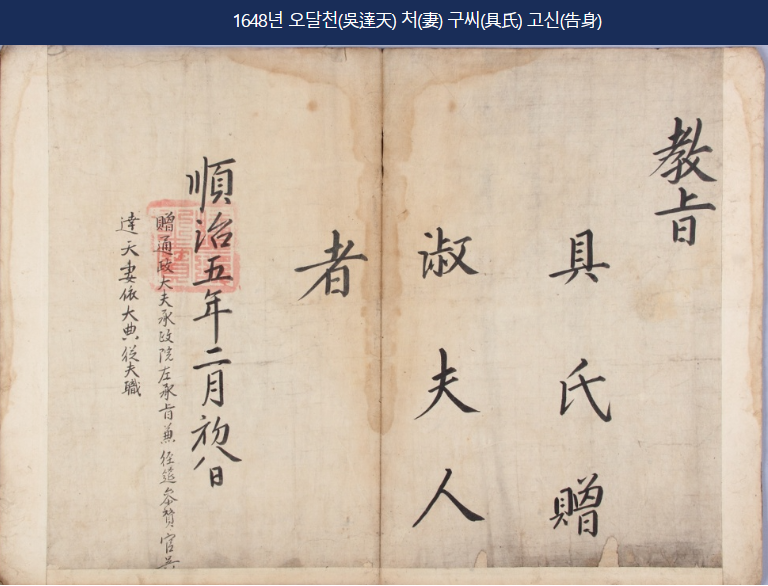 1648년 오달천(吳達天) 처(妻) 구씨(具氏) 고신(告身)
教旨
具氏贈
淑夫人
者
順治五年二月初八日
贈通政大夫承政院左承旨兼經筵參贊官吳
達天妻依大典從夫職